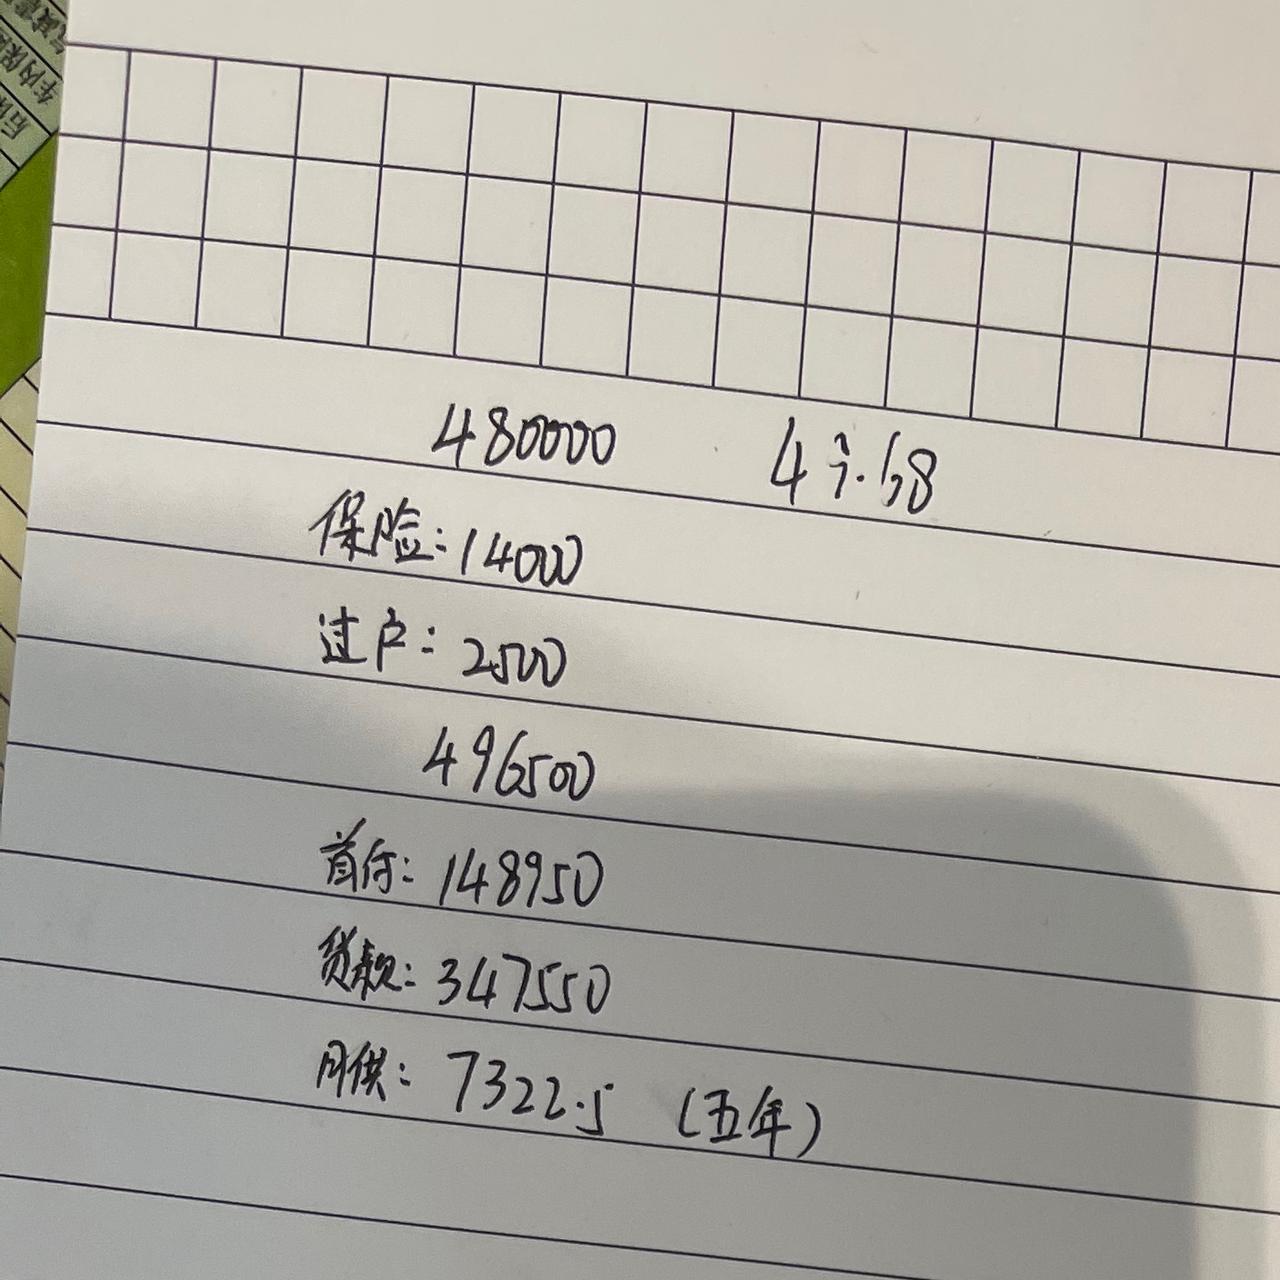 480000
保险：14000
过户：2500
496500
首付：148950
贷款：347550
月供：7322.5 （五年）
车内保